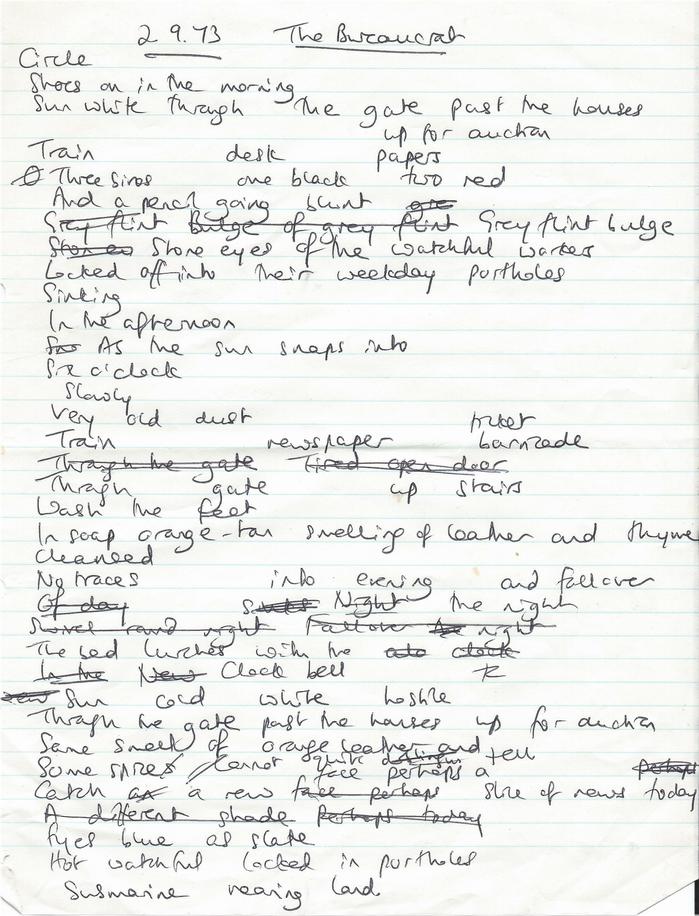 2.9.73 The Bureaucrat
Circle
Shoes on in the morning
Sun white through the gate past the houses
up for auction
Train desk papers
Three biros one black two red
And a pencil going blunt are
Grey flint Bulge of grey flint Grey flint bulge
Stone eyes of the watchful workers
Locked off into their weekday portholes
Sinking
In the afternoon
As the sun snaps into
Six o'clock
Slowly
Very old dust ticket
Train newspaper barricade
Through the gate Tired open door
Through gate up stairs
Wash the feet
In soap orange-tan smelling of leather and thyme
Cleansed
No traces into evening and fallover
Of day Night the night
round night Fallover night
The bed lurches with the clock
In the New Clock bell
Sun cold white hostile
Through the gate past the houses up for auction
Same smell of orange leather and
Some spice cannot quite distinguish tell
face perhaps a perhaps
Catch a new face perhaps slice of news today
A different shade perhaps today
Eyes blue as slate
Hot watchful locked in portholes
Submarine nearing land